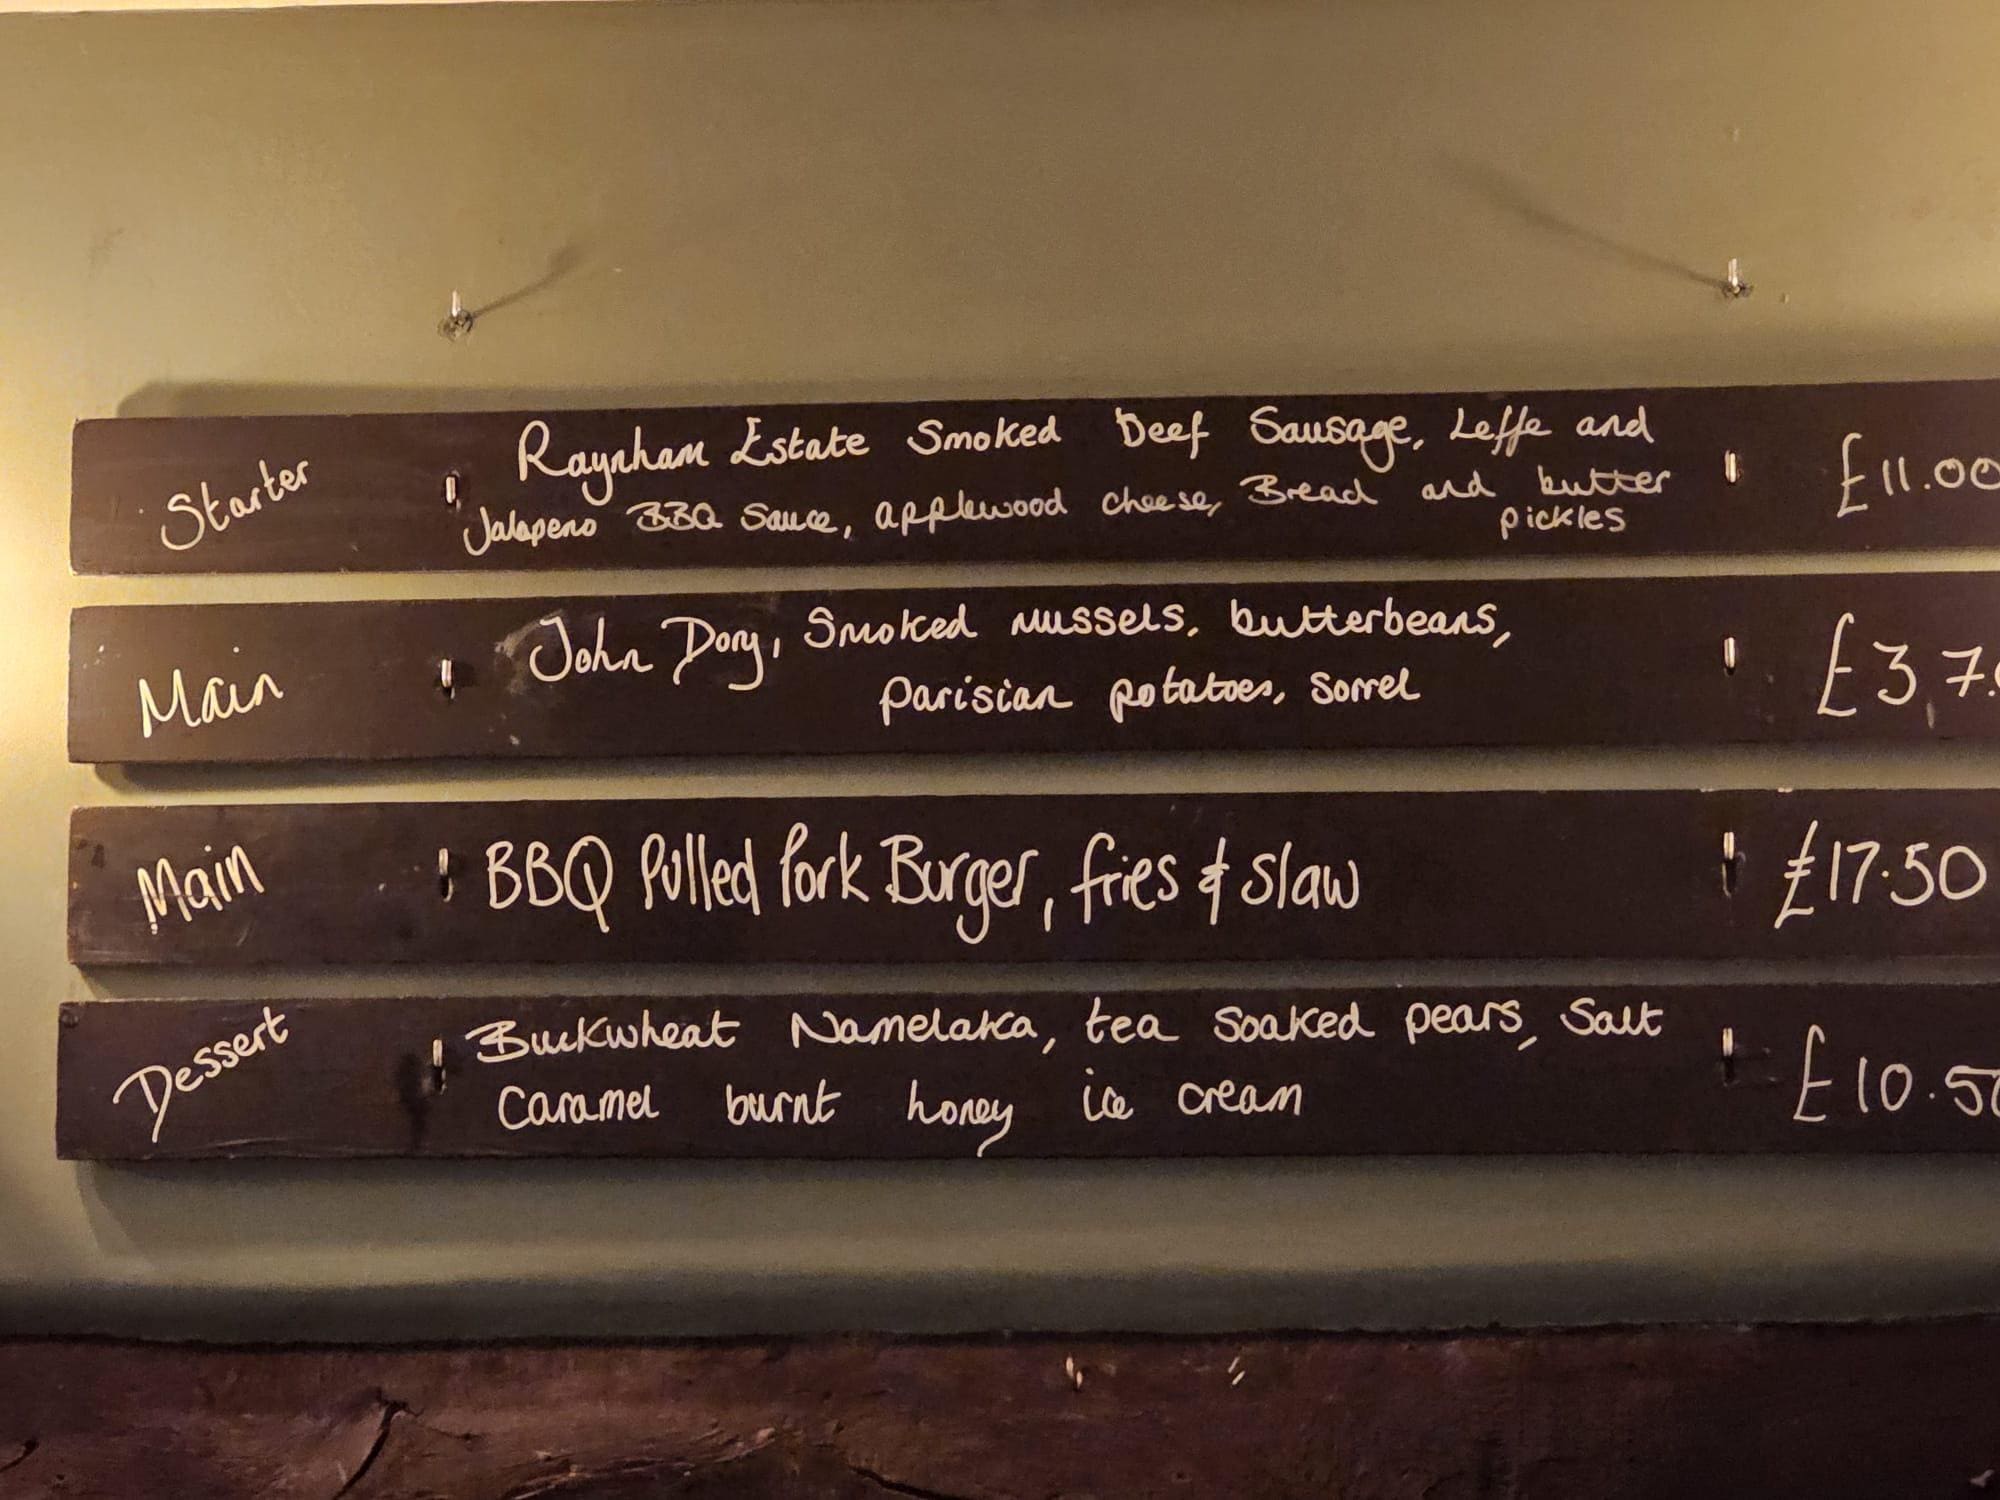 Starter
Raynham Estate Smoked Deef Sausage, Leffe and
Jalapeno BBQ Sauce, applewood cheese, Bread and butter
pickles
£11.00
Main
John Dory, Smoked mussels, butterbeans,
Parisian potatoes, sorrel
£37.
Main
BBQ Pulled Pork Burger, fries & slaw
£17.50
Dessert
Buckwheat Namelaka, tea soaked pears, Salt
Caramel burnt honey ice cream
£10.50